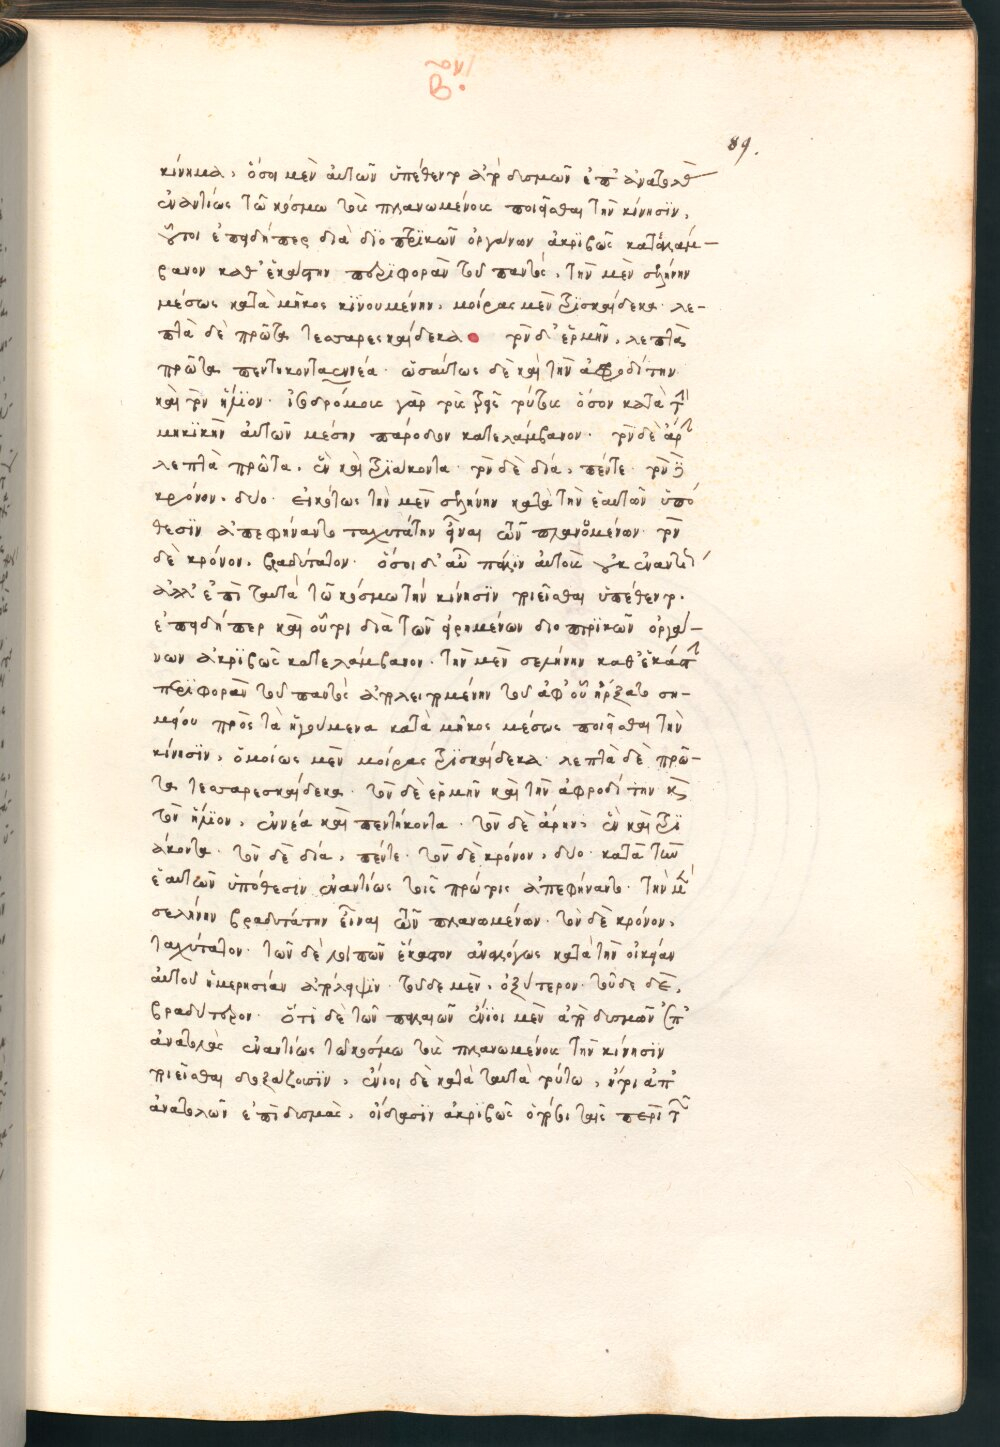 89.
κίνημα, ὅσοι μὲν αὐτῶν ὑπέθεντο ἀπὸ δυσμῶν ἐπ' ἀνατολὰς
ἐναντίως τῶ κόσμω τοὺς πλανωμένους ποιεῖσθαι τὴν κίνησϊν,
οὗτοι ἐπειδήπερ διὰ διοπτρϊκῶν ὀργάνων ἀκριβῶς κατελάμ-
βανον καθ' ἑκάστην περϊφορὰν τοῦ παντὸς, τὴν μὲν σελήνην
μέσως κατὰ μῆκος κϊνουμένην, μοίρας μὲν τρϊσκαίδεκα λε-
πτὰ δὲ πρῶτα τεσσαρεσκαίδεκα τὸν δ' ἑρμῆν, λεπτὰ
πρῶτα πεντηκονταεννέα · ὡσαύτως δὲ καὶ τὴν ἀφροδίτην
καὶ τὸν ἥλϊον · ἰσοδρόμους γὰρ τοὺς τρεῖς τούτους ὅσον κατὰ τὴν
μηκϊκὴν αὐτῶν μέσην πάροδον κατελάμβανον · τὸν δὲ ἄρην
λεπτὰ πρῶτα, ἓν καὶ τρϊάκοντα · τὸν δὲ δία, πέντε · τὸν δὲ
κρόνον, δύο · εἰκότως τὴν μὲν σελήνην κατὰ τὴν ἑαυτῶν ὑπό
θεσϊν ἀπεφήναντο ταχυτάτην εἶναι τῶν πλανωμένων · τὸν
δὲ κρόνον, βραδύτατον · ὅσοι δ' αὖ πάλϊν αὐτοὺς οὐκ ἐναντί
ἀλλ' ἐπὶ ταυτὰ τῶ κόσμω τὴν κίνησϊν ποιεῖσθαι ὑπέθεντο.
ἐπειδήπερ καὶ οὗτοι διὰ τῶν εἰρημένων διοπτρϊκῶν ὀργά-
νων ἀκρϊβῶς κατελάμβανον · τὴν μὲν σελήνην καθ' ἑκάστην
περϊφορὰν τοῦ παντὸς ἀπολειπομένην τοῦ ἀφ' οὗ ἤρξατο ση-
μείου πρὸς τὰ ἡγούμενα κατὰ μῆκος μέσως ποιεῖσθαι τὴν
κίνησϊν, ὁμοίως μὲν μοίρας τρϊσκαίδεκα · λεπτὰ δὲ πρῶ-
τα τεσσαρεσκαίδεκα · τὸν δὲ ἑρμῆν καὶ τὴν ἀφροδίτην κϛ
τὸν ἥλϊον, ἐννέα καὶ πεντήκοντα · τὸν δὲ ἄρην, ἓν καὶ τρϊ
άκοντα · τὸν δὲ δία, πέντε · τὸν δὲ κρόνον, δύο · κατὰ τὴν
ἑαυτῶν ὑπόθεσϊν ἐναντίως τοῖς πρώτοις ἀπεφήναντο · τὴν μὲν
σελήνην βραδυτάτην εἶναι τῶν πλανωμένων · τὸν δὲ κρόνον,
ταχύτατον · τῶν δὲ λοιπῶν ἕκαστον ἀναλόγως κατὰ τὴν οἰκείαν
αὐτοῦ ἡμερησίαν ἀπόλειψϊν · τοῦδε μὲν, ὀξύτερον · τοῦδε δὲ,
βραδύτερον · ὅτϊ δὲ τῶν παλαιῶν ἔνϊοι μὲν ἀπὸ δυσμῶν ἐπ'
ἀνατολὰς ἐναντίως τῶ κόσμω τοὺς πλανωμένους τὴν κίνησϊν
ποιεῖσθαι δοξάζουσϊν, ἔνιοι δὲ κατὰ ταυτὰ τούτω, ἤτοι ἀπ'
ἀνατολῶν ἐπὶ δυσμὰς, οἴδασϊν ἀκρϊβῶς ὁπόσοι ταῖς περὶ τῶν